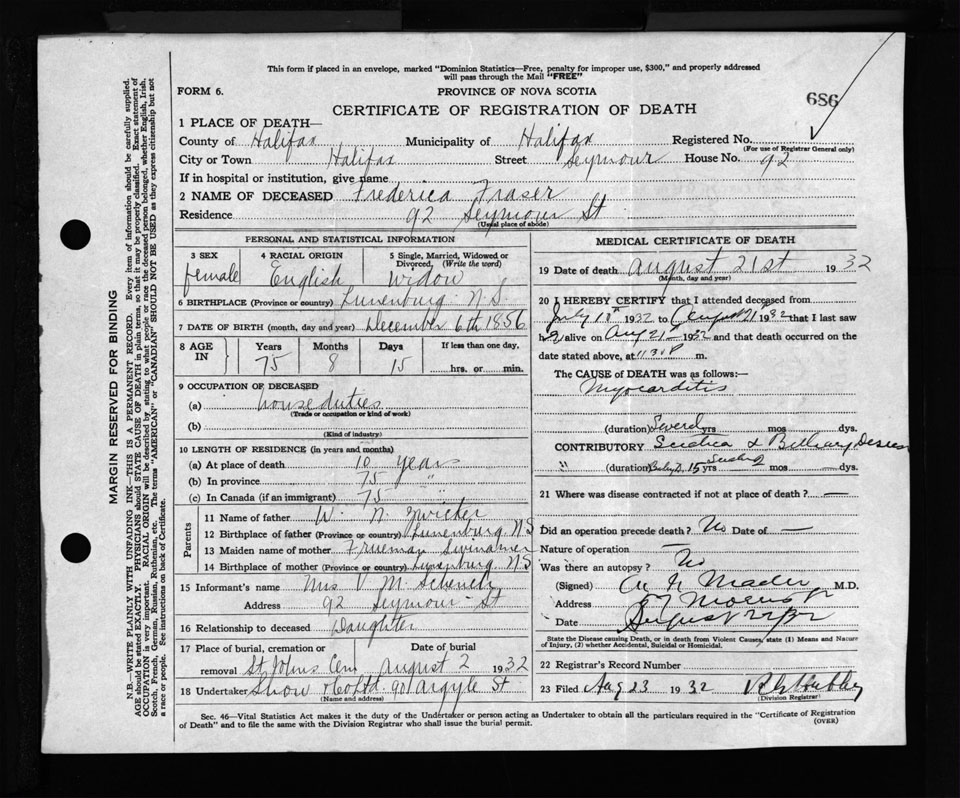 This form if placed in an envelope, marked "Dominion Statistics—Free, penalty for improper use, $300," and properly addressed
will pass through the Mail "FREE"
FORM 6.
PROVINCE OF NOVA SCOTIA
CERTIFICATE OF REGISTRATION OF DEATH
686
1 PLACE OF DEATH—
County of Halifax Municipality of Halifax Registered No.
(For use of Registrar General only)
City or Town Halifax Street Seymour House No. 92
If in hospital or institution, give name
2 NAME OF DECEASED Frederica Fraser
Residence 92 Seymour St
(Usual place of abode)
PERSONAL AND STATISTICAL INFORMATION
3 SEX 4 RACIAL ORIGIN 5 Single, Married, Widowed or
Divorced, (Write the word)
female English Widow
6 BIRTHPLACE (Province or country) Lunenburg N.S.
7 DATE OF BIRTH (month, day and year) December 6th 1856
8 AGE IN Years Months Days If less than one day,
75 8 15 hrs. or min.
9 OCCUPATION OF DECEASED
(a) house duties
(Trade or occupation or kind of work)
(b)
(Kind of industry)
10 LENGTH OF RESIDENCE (in years and months)
(a) At place of death 10 years
(b) In province 75 "
(c) In Canada (if an immigrant) 75 "
Parents
11 Name of father W. N. Zwicker
12 Birthplace of father (Province or country) Lunenburg NS
13 Maiden name of mother Swinamer
14 Birthplace of mother (Province or country) Lunenburg NS
15 Informant's name Mrs V. M. Schench
Address 92 Seymour St
16 Relationship to deceased Daughter
17 Place of burial, cremation or Date of burial
removal St Johns Cem August 2 1932
18 Undertaker Snow & Co Ltd 90 Argyle St
(Name and address)
MEDICAL CERTIFICATE OF DEATH
19 Date of death August 21st 1932
(Month, day and year)
20 I HEREBY CERTIFY that I attended deceased from
July 1932 to August 21 1932 that I last saw
h alive on Aug 21 1932 and that death occurred on the
date stated above, at 11.30 P m.
The CAUSE of DEATH was as follows:—
Myocarditis
(duration) yrs mos dys.
CONTRIBUTORY Sciatica &
(duration) 15 yrs mos dys.
21 Where was disease contracted if not at place of death? —
Did an operation precede death? No Date of —
Nature of operation —
Was there an autopsy? No
(Signed) A N Mader M.D.
Address Morris St
Date August 22/32
State the Disease Causing Death, or in death from Violent Causes, state (1) Means and Nature
of Injury, (2) whether Accidental, Suicidal or Homicidal.
22 Registrar's Record Number
23 Filed Aug 23 1932
(Division Registrar)
Sec. 46—Vital Statistics Act makes it the duty of the Undertaker or person acting as Undertaker to obtain all the particulars required in the "Certificate of Registration
of Death" and to file the same with the Division Registrar who shall issue the burial permit.
(OVER)
MARGIN RESERVED FOR BINDING
N.B.—WRITE PLAINLY WITH UNFADING INK—THIS IS A PERMANENT RECORD. Every item of information should be carefully supplied.
AGE should be stated EXACTLY. PHYSICIANS should STATE CAUSE OF DEATH in plain terms, so that it may be properly classified. Exact statement of
OCCUPATION is very important. RACIAL ORIGIN will be described by stating to what people or race the deceased person belonged, whether English, Irish,
Scotch, French, German, Russian, Ruthenian, etc. The terms "AMERICAN" or "CANADIAN" SHOULD NOT BE USED as they express citizenship but not
a race or people. See instructions on back of Certificate.